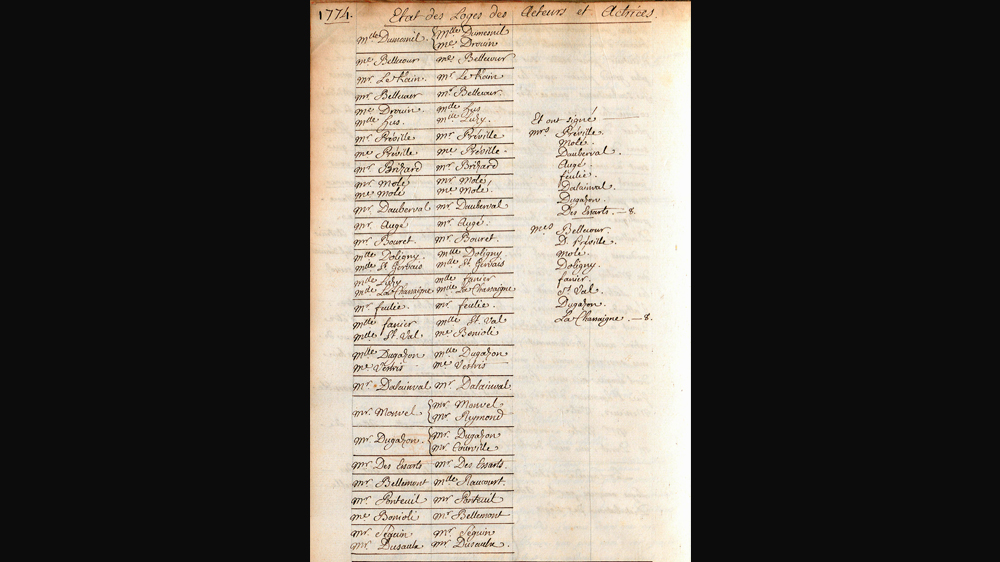 1774. Etat des Loges des Acteurs et Actrices.
mlle Dumesnil. { mlle Dumesnil
me Drouin
me Bellecour me Bellecour
mr Le Kain. mr Le Kain.
mr Bellecour mr Bellecour.
me Drouin. mlle hus
mlle hus. mlle Luzy.
mr Préville mr Préville
me Préville me Préville.
mr Brizard mr Brizard
mr Molé mr Molé,
me Molé me Molé.
mr Dauberval mr Dauberval
mr Augé mr Augé.
mr Bouret. mr Bouret.
mlle Doligny mlle Doligny
mlle St. Gervais mlle St. Gervais
mlle Luzy mlle fanier
mlle La Chassaigne mlle La Chassaigne
mr feulie. mr feulie.
mlle fanier mlle St. Val
mlle St. Val. me Bonioli
mlle Dugazon mlle Dugazon
me Vestris me Vestris
mr Dalainval mr Dalainval.
mr Monvel { mr Monvel
mr Reymond
mr Dugazon. { mr Dugazon
mr Courville
mr Des Essarts mr Des Essarts.
mr Bellemont mlle Raucourt.
mr Ponteuil mr Ponteuil
me Bonioli mr Bellemont
mr Seguin mr Seguin
mr Dusaulx mr Dusaulx.
Et ont signé
mrs Préville.
Molé.
Dauberval.
Augé.
feulie.
Dalainval.
Dugazon.
Des Essarts. — 8.
mes Bellecour.
D. Préville.
Molé.
Doligny.
fanier.
St Val.
Dugazon.
La Chassaigne. — 8.